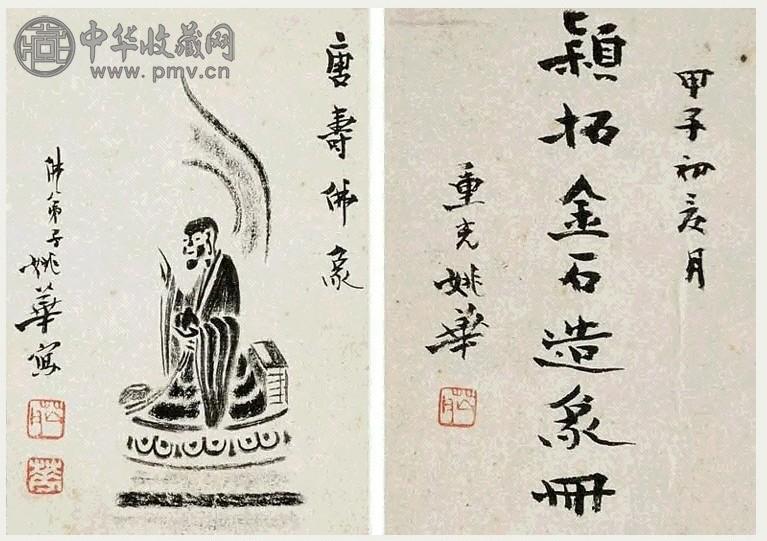 中华收藏网
www.pmv.cn
甲子初月
穎拓金石造象冊
重光姚華
唐壽佛象
佛弟子姚華寫